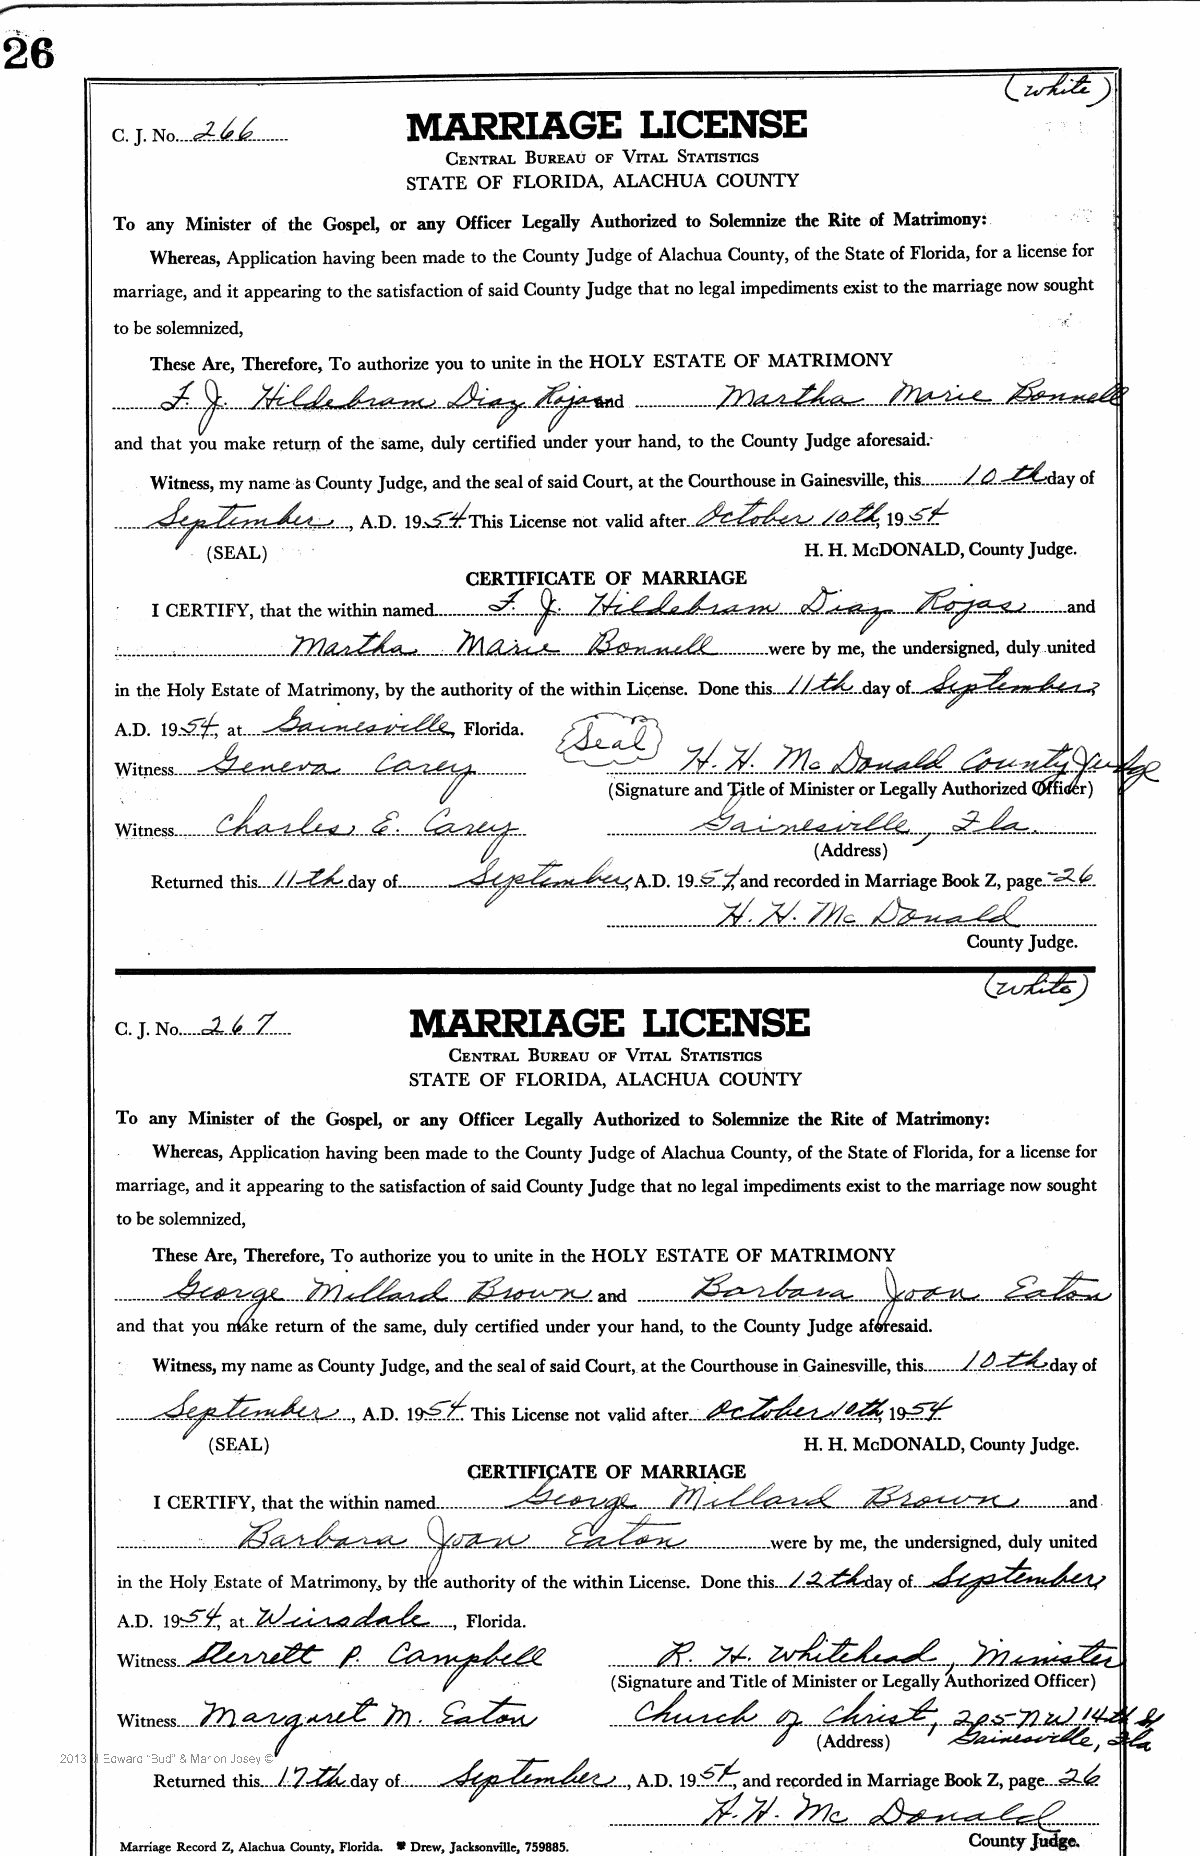 26
(white)
C. J. No. 266
MARRIAGE LICENSE
CENTRAL BUREAU OF VITAL STATISTICS
STATE OF FLORIDA, ALACHUA COUNTY
To any Minister of the Gospel, or any Officer Legally Authorized to Solemnize the Rite of Matrimony:
Whereas, Application having been made to the County Judge of Alachua County, of the State of Florida, for a license for
marriage, and it appearing to the satisfaction of said County Judge that no legal impediments exist to the marriage now sought
to be solemnized,
These Are, Therefore, To authorize you to unite in the HOLY ESTATE OF MATRIMONY
F. J. Hildebram Diaz Rojas and Martha Marie Bonnell
and that you make return of the same, duly certified under your hand, to the County Judge aforesaid.
Witness, my name as County Judge, and the seal of said Court, at the Courthouse in Gainesville, this 10th day of
September, A.D. 1954 This License not valid after October 10th, 1954
(SEAL) H. H. McDONALD, County Judge.
CERTIFICATE OF MARRIAGE
I CERTIFY, that the within named F. J. Hildebram Diaz Rojas and
Martha Marie Bonnell were by me, the undersigned, duly united
in the Holy Estate of Matrimony, by the authority of the within License. Done this 11th day of September,
A.D. 1954, at Gainesville, Florida.
Seal
Witness Geneva Carey H. H. McDonald County Judge
(Signature and Title of Minister or Legally Authorized Officer)
Witness Charles E. Carey Gainesville, Fla.
(Address)
Returned this 11th day of September, A.D. 1954, and recorded in Marriage Book Z, page 26
H. H. McDonald
County Judge.
(white)
C. J. No. 267
MARRIAGE LICENSE
CENTRAL BUREAU OF VITAL STATISTICS
STATE OF FLORIDA, ALACHUA COUNTY
To any Minister of the Gospel, or any Officer Legally Authorized to Solemnize the Rite of Matrimony:
Whereas, Application having been made to the County Judge of Alachua County, of the State of Florida, for a license for
marriage, and it appearing to the satisfaction of said County Judge that no legal impediments exist to the marriage now sought
to be solemnized,
These Are, Therefore, To authorize you to unite in the HOLY ESTATE OF MATRIMONY
George Millard Brown and Barbara Joan Eaton
and that you make return of the same, duly certified under your hand, to the County Judge aforesaid.
Witness, my name as County Judge, and the seal of said Court, at the Courthouse in Gainesville, this 10th day of
September, A.D. 1954. This License not valid after October 10th, 1954
(SEAL) H. H. McDONALD, County Judge.
CERTIFICATE OF MARRIAGE
I CERTIFY, that the within named George Millard Brown and
Barbara Joan Eaton were by me, the undersigned, duly united
in the Holy Estate of Matrimony, by the authority of the within License. Done this 12th day of September,
A.D. 1954, at Weirsdale, Florida.
Witness Sterrett P. Campbell R. H. Whitehead, Minister
(Signature and Title of Minister or Legally Authorized Officer)
Witness Margaret M. Eaton Church of Christ, 205 NW 14th St
(Address) Gainesville, Fla
2013 Edward "Bud" & Marion Josey ©
Returned this 17th day of September, A.D. 1954, and recorded in Marriage Book Z, page 26
H. H. McDonald
County Judge.
Marriage Record Z, Alachua County, Florida. Drew, Jacksonville, 759885.